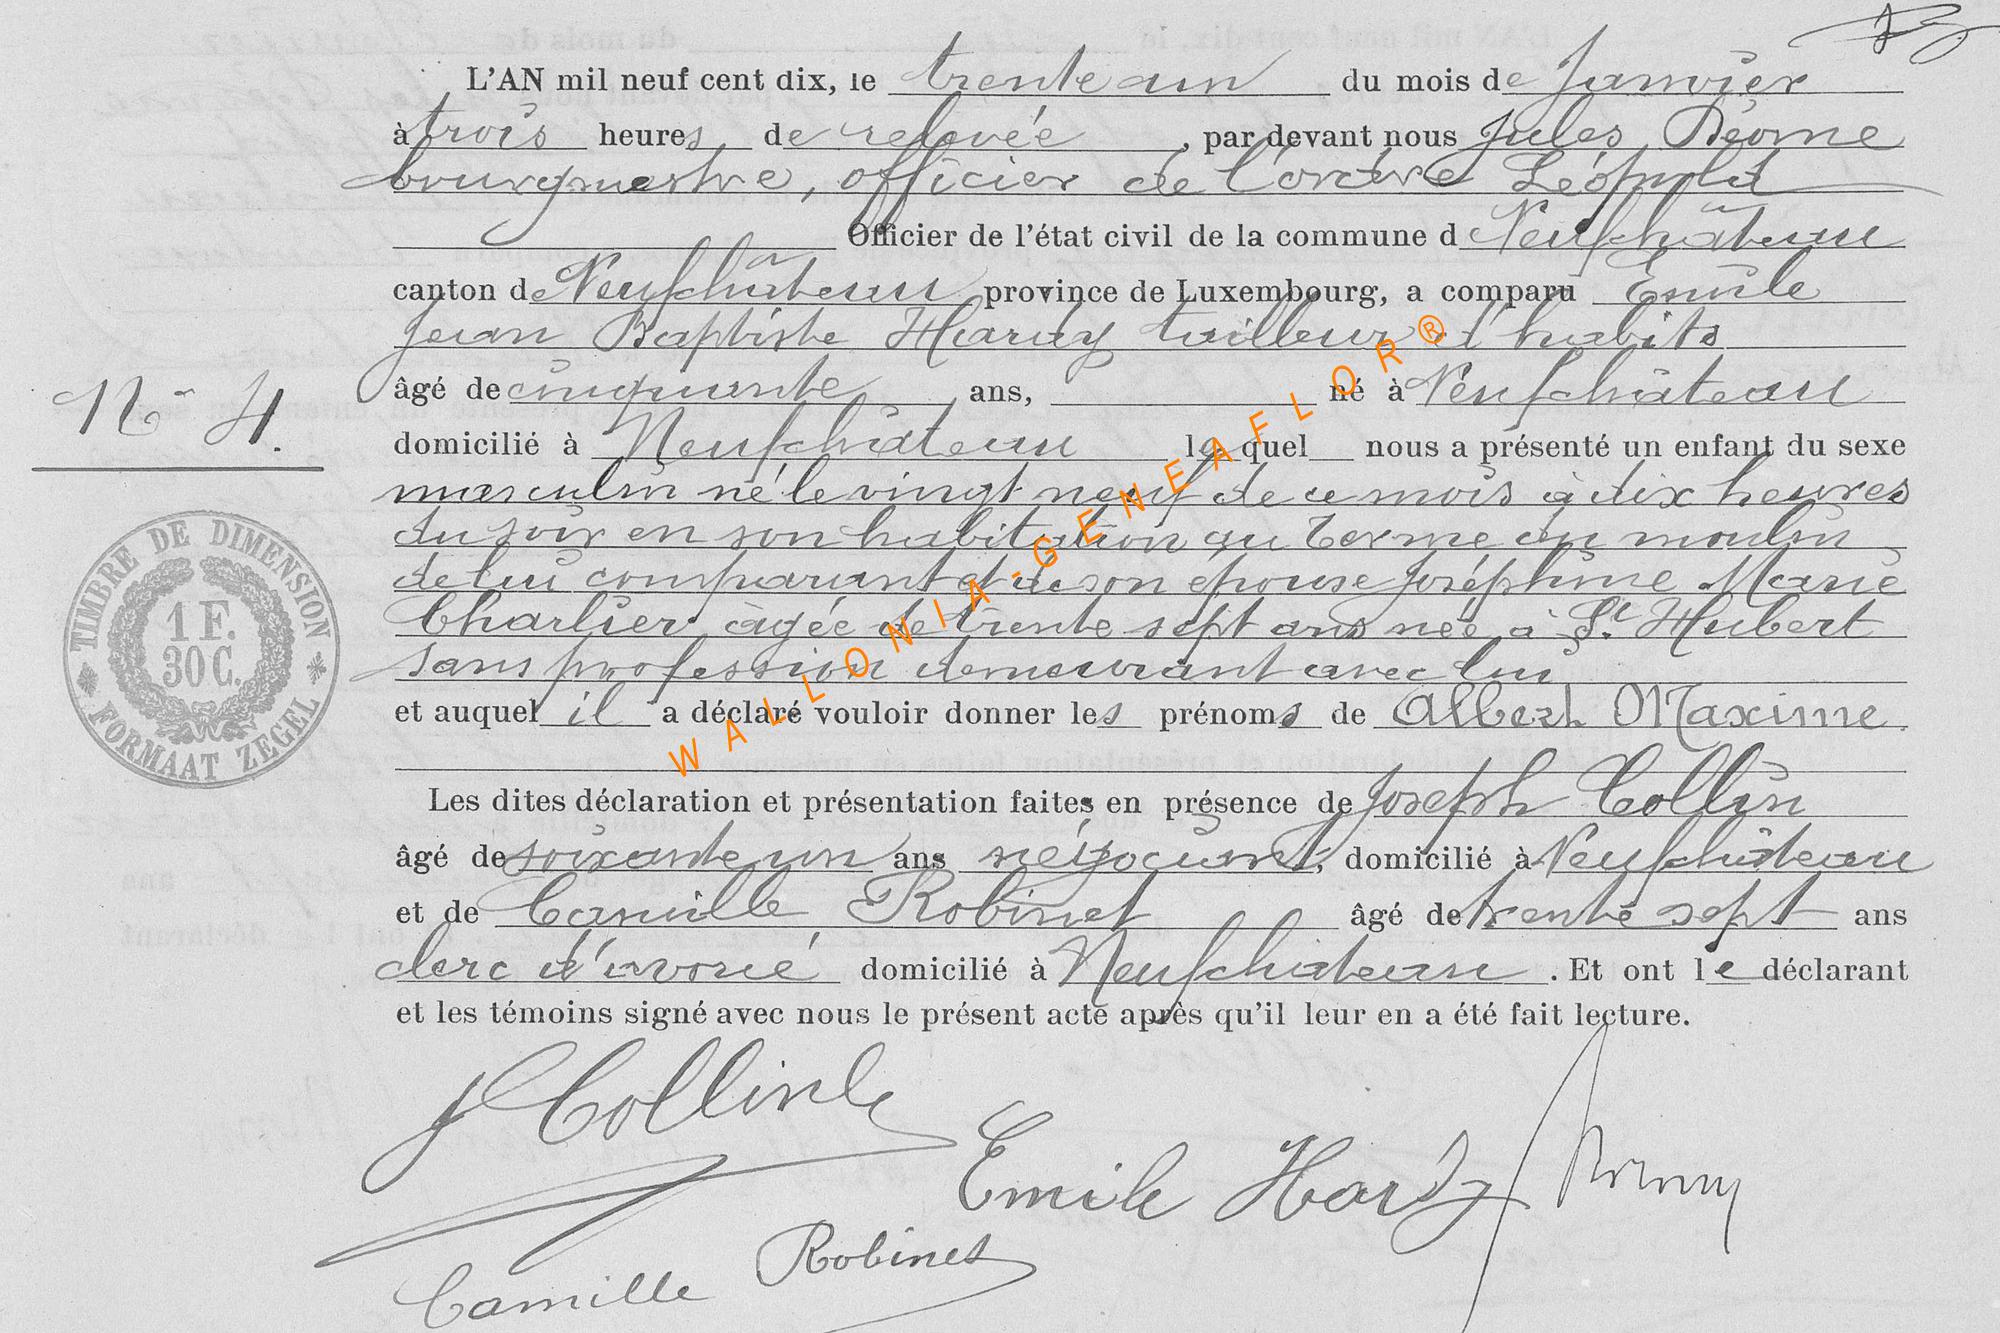 L'AN mil neuf cent dix, le trente un du mois de Janvier
à trois heures de relevée, par devant nous Jules
bourgmestre, officier de l'ordre Léopold
Officier de l'état civil de la commune d Neufchâteau
canton de Neufchâteau province de Luxembourg, a comparu Emile
Jean Baptiste Hardy tailleur d'habits
âgé de cinquante ans, né à Neufchâteau
No 4.
domicilié à Neufchâteau lequel nous a présenté un enfant du sexe
masculin né le vingt neuf de ce mois à dix heures
du soir en son habitation au Terme du moulin
de lui comparant et de son épouse Joséphine Marie
Charlier âgée de trente sept ans née à St Hubert
sans profession demeurant avec lui
et auquel il a déclaré vouloir donner les prénoms de Albert Maxime.
Les dites déclaration et présentation faites en présence de Joseph Collin
âgé de soixante un ans négociant, domicilié à Neufchâteau
et de Camille Robinet âgé de trente sept ans
clerc d'avoué domicilié à Neufchâteau. Et ont le déclarant
et les témoins signé avec nous le présent acte après qu'il leur en a été fait lecture.
TIMBRE DE DIMENSION
1 F.
30 C.
FORMAAT ZEGEL
J Collin
Emile Hardy
Camille Robinet
WALLONIA-GENEAFLOR®